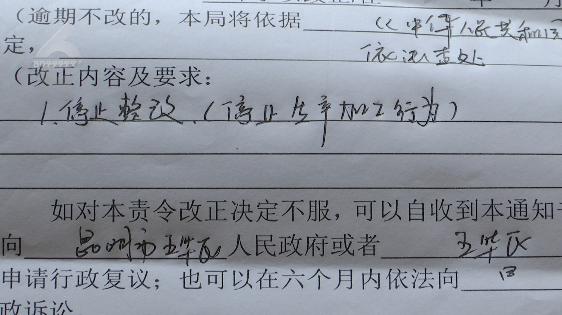 (逾期不改的，本局将依据 《中华人民共和国
定，依法查处
(改正内容及要求：
1.停止整改.(停止生产加工行为)
如对本责令改正决定不服，可以自收到本通知书
向 昆明市五华区 人民政府或者 五华区
申请行政复议；也可以在六个月内依法向
政诉讼